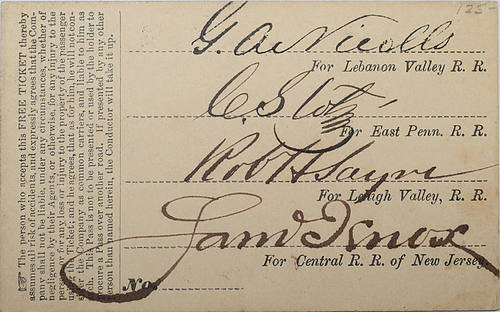 ☞ The person who accepts this FREE TICKET thereby
assumes all risk of accidents, and expressly agrees that the Com-
pany shall not be liable, under any circumstances, whether of
negligence by their Agents, or otherwise, for any injury to the
person, or for any loss or injury to the property of the passenger
using the Ticket; and he agrees, that as for him, he will not con-
sider the Company as common carriers, and liable to him as
such. This Pass is not to be presented or used by the holder to
procure a Pass over another road. If presented by any other
person than named herein, the Conductor will take it up.
125
G. A. Nicolls
For Lebanon Valley R. R.
For East Penn. R. R.
Robt H Sayre
For Lehigh Valley, R. R.
Saml Knox
For Central R. R. of New Jersey.
No.